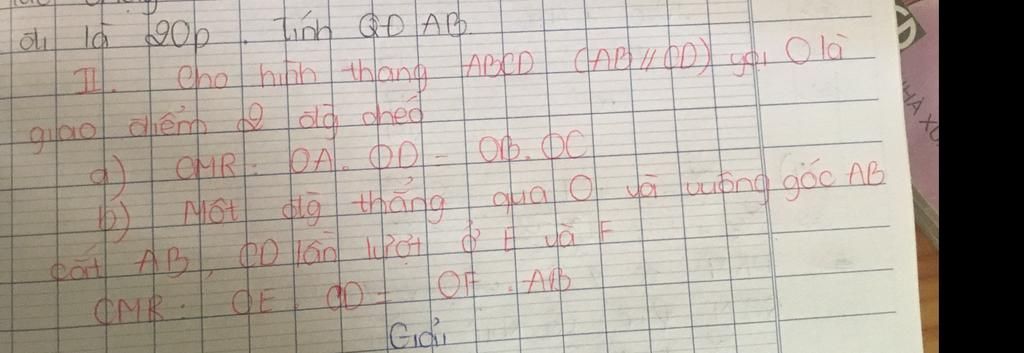 đi là 90p. Tính QĐ AB.
II. Cho hình thang ABCD (AB // CD) gọi O là
giao điểm 2 đg chéo
a) CMR: OA. OD = OB. OC
b) Một đg thẳng qua O và vuông góc AB
cắt AB, CD lần lượt ở E và F
CMR: OE. CD = OF. AB
Giải